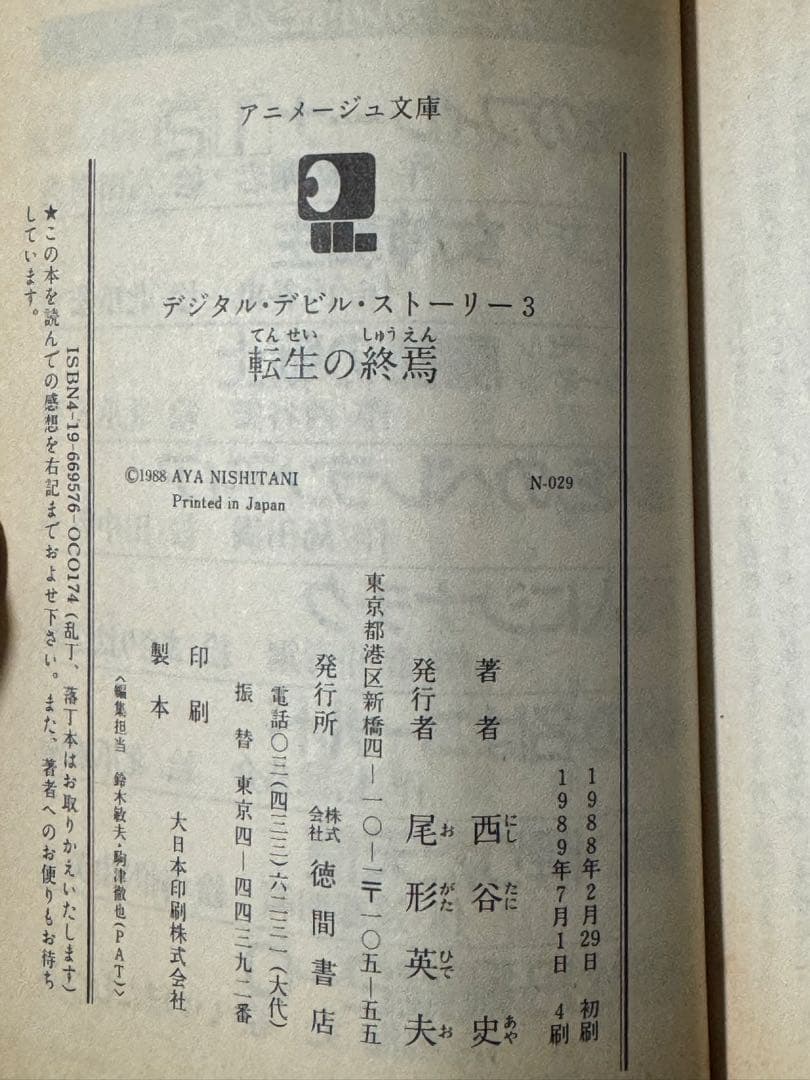 アニメージュ文庫
デジタル・デビル・ストーリー3
転生の終焉
てんせい しゅうえん
©1988 AYA NISHITANI
Printed in Japan
N-029
1988年2月29日 初刷
1989年7月1日 4刷
著者 西谷史
にし たに あや
発行者 尾形英夫
お がた ひで お
東京都港区新橋四―一〇―一〒一〇五―五五
発行所 株式会社 徳間書店
電話〇三(四三三)六二三一(大代)
振替 東京四―四四三九二番
印刷
製本
大日本印刷株式会社
〈編集担当 鈴木敏夫・駒津徹也(PAT)〉
ISBN4-19-669576-0C0174(乱丁、落丁本はお取りかえいたします)
★この本を読んでの感想を右記までおよせ下さい。また、著者へのお便りもお待ち
しています。